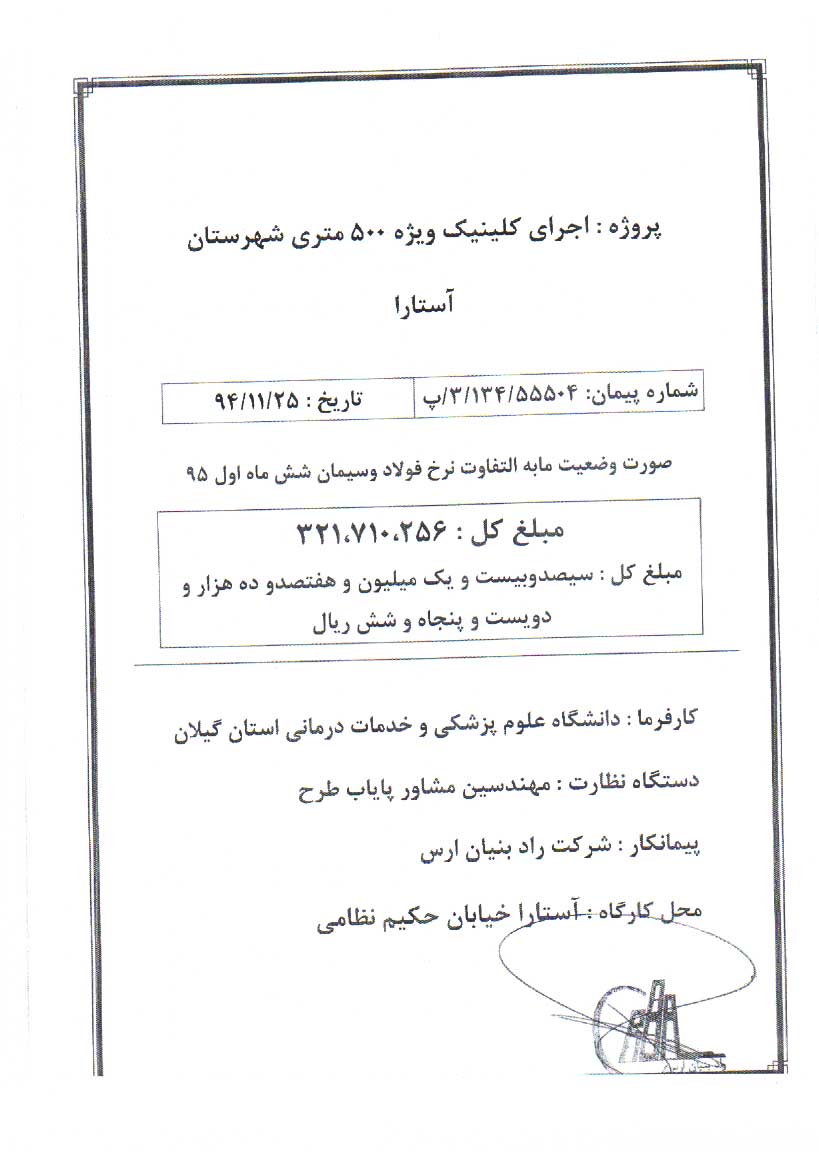 پروژه : اجرای کلینیک ویژه ۵۰۰ متری شهرستان
آستارا
شماره پیمان: ۳/۱۳۴/۵۵۵۰۴/پ
تاریخ : ۹۴/۱۱/۲۵
صورت وضعیت مابه التفاوت نرخ فولاد وسیمان شش ماه اول ۹۵
مبلغ کل : ۳۲۱،۷۱۰،۲۵۶
مبلغ کل : سیصدوبیست و یک میلیون و هفتصدو ده هزار و
دویست و پنجاه و شش ریال
کارفرما : دانشگاه علوم پزشکی و خدمات درمانی استان گیلان
دستگاه نظارت : مهندسین مشاور پایاب طرح
پیمانکار : شرکت راد بنیان ارس
محل کارگاه : آستارا خیابان حکیم نظامی
راد بنیان ارس